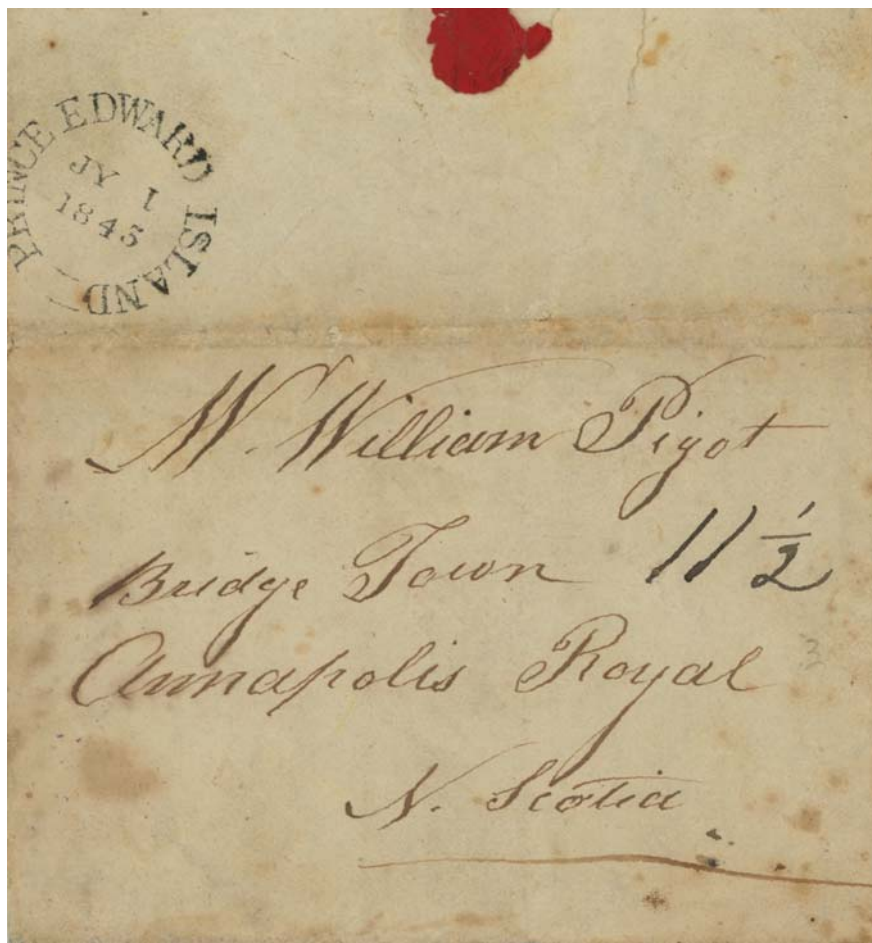 PRINCE EDWARD ISLAND
JY 1
1845
Mr. William Pigot
Bridge Town 11 1/2
Annapolis Royal
3
N. Scotia